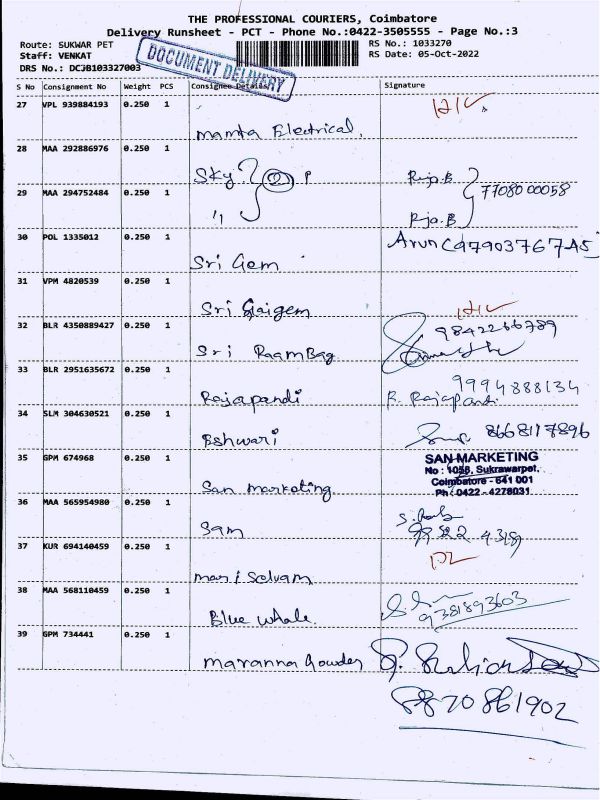 THE PROFESSIONAL COURIERS, Coimbatore
Delivery Runsheet - PCT - Phone No.:0422-3505555 - Page No.:3
Route: SUKWAR PET RS No.: 1033270
Staff: VENKAT RS Date: 05-Oct-2022
DRS No.: DCJB103327003
DOCUMENT DELIVERY
S No Consignment No Weight PCS Consignee Details Signature
27 VPL 939884193 0.250 1
Mamta Electrical.
28 MAA 292886976 0.250 1
Sky P Raja.B
29 MAA 294752484 0.250 1 7708000058
" Raja.B
30 POL 1335012 0.250 1 Arun
Sri Gem
31 VPM 4820539 0.250 1
Sri Gaigem
32 BLR 4350889427 0.250 1 9842266789
Sri RaamBag
33 BLR 2951635672 0.250 1 9994888134
Rajapandi R. Rajapandi
34 SLM 304630521 0.250 1 8668117896
Eshwari
35 GPM 674968 0.250 1 SAN MARKETING
No : 1058, Sukrawarpet,
Coimbatore - 641 001
Ph : 0422 - 4278031
San marketing
36 MAA 565954980 0.250 1
Sam
37 KUR 694140459 0.250 1 DL
mari Selvam
38 MAA 568110459 0.250 1 9381893603
Blue whale.
39 GPM 734441 0.250 1
maranna Gowder
8870861902